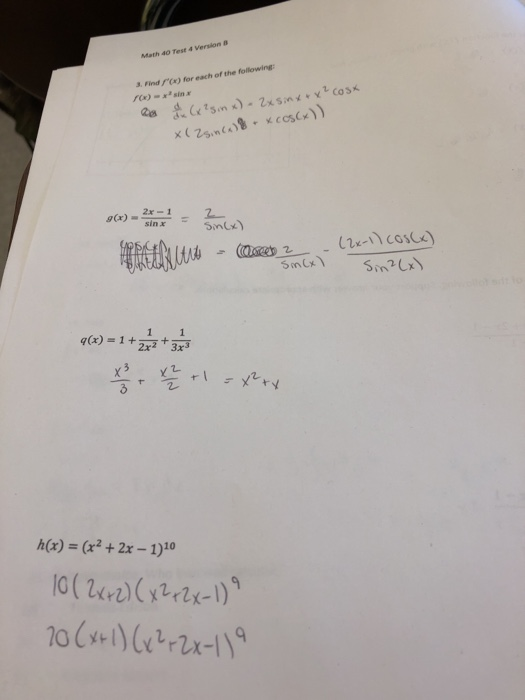 Math 40 Test 4 Version B
3. Find f'(x) for each of the following:
f(x) = x² sin x
d/dx (x² sin x) = 2x sin x + x² cos x
x(2 sin(x) + x cos(x))
g(x) = (2x − 1)/(sin x) = 2/(sin(x))
= 2/(sin(x)) − ((2x−1) cos(x))/(sin²(x))
q(x) = 1 + 1/(2x²) + 1/(3x³)
x³/3 + x²/2 + 1 = x² + x
h(x) = (x² + 2x − 1)¹⁰
10(2x+2)(x²+2x−1)⁹
20(x+1)(x²+2x−1)⁹